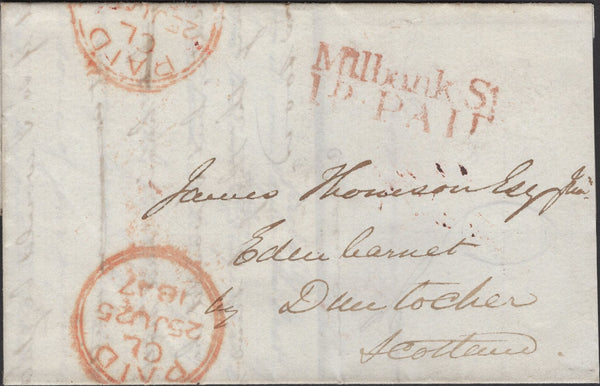 25JU
CL
PAID
Millbank St
1D PAID
James Thomson Esq Jun.
Edenbarnet
by Duntocher
Scotland.
1847
25JU25
CL
PAID